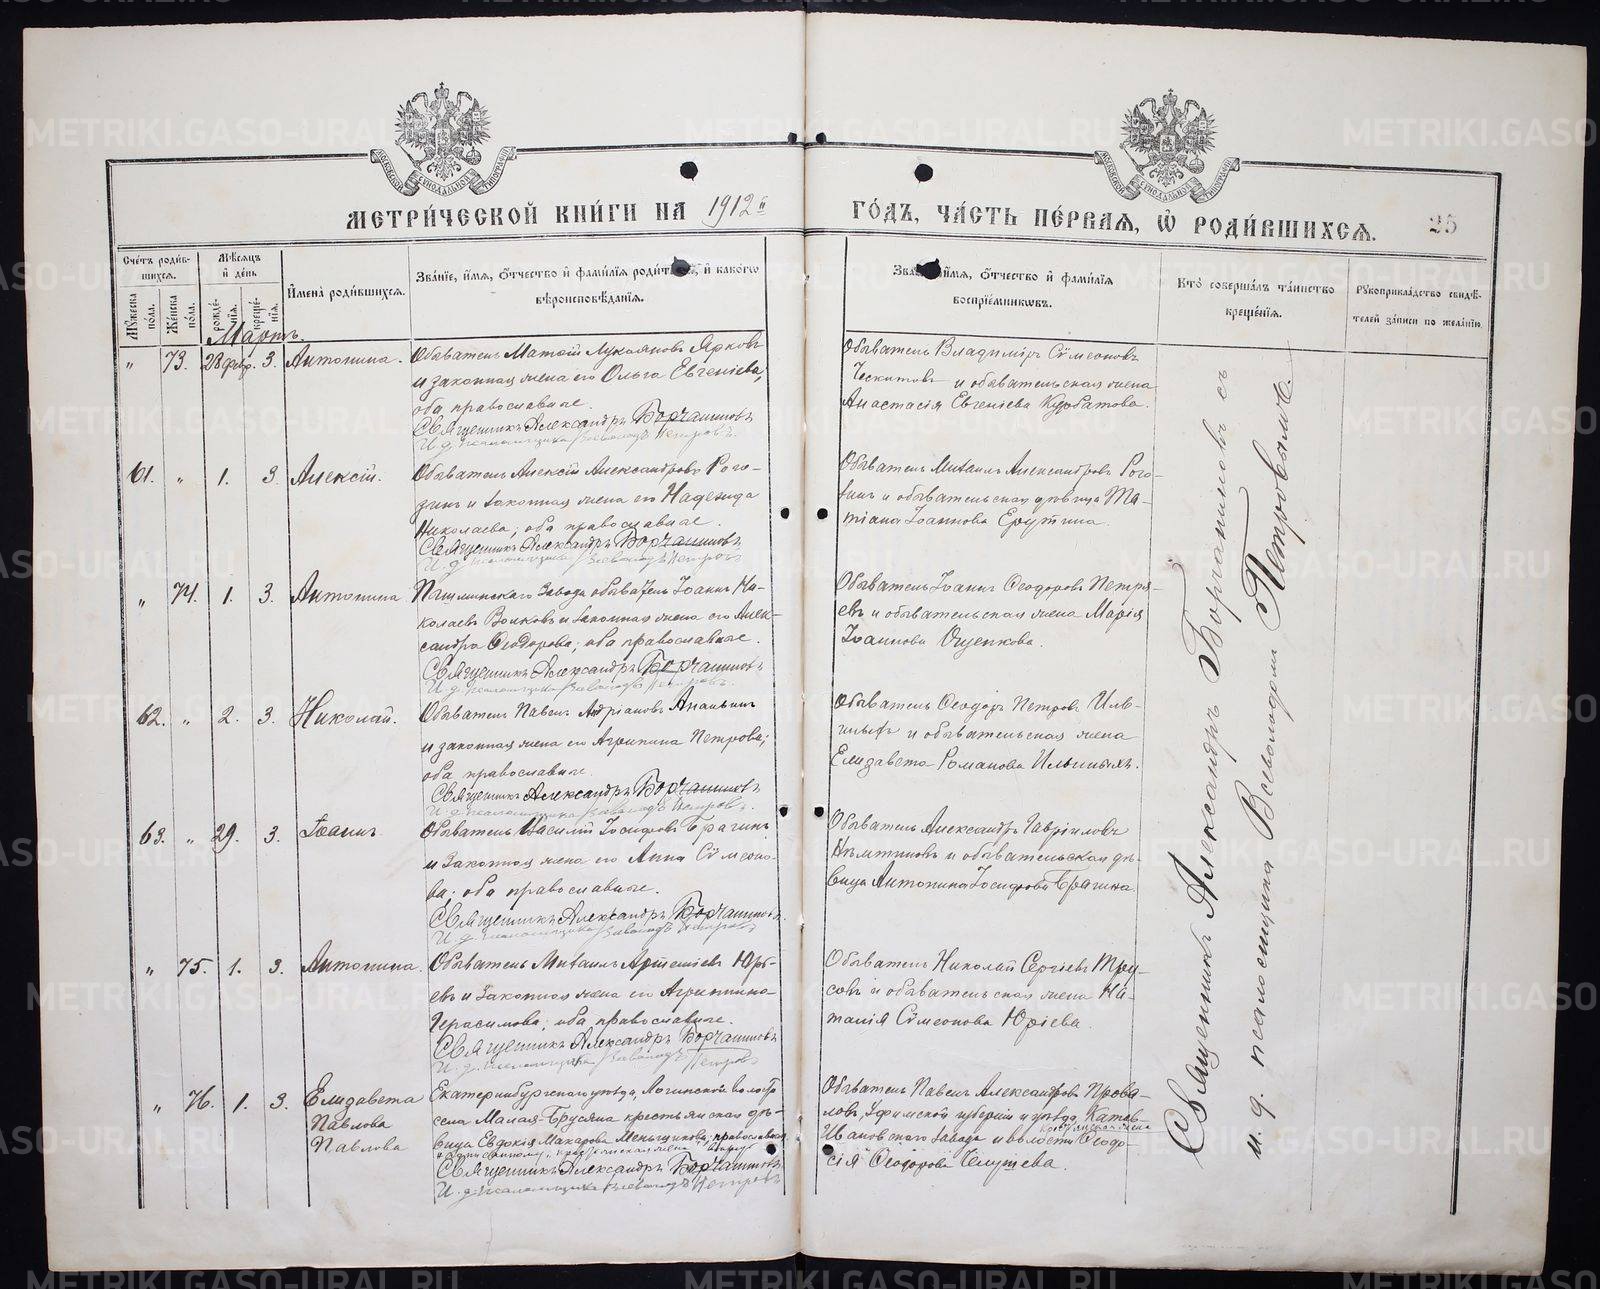 МЕТРИЧЕСКОЙ КНИГИ НА 1912й
ГОДЪ, ЧАСТЬ ПЕРВАЯ, Ѡ РОДИВШИХСѦ.
25
Счетъ родив-
шихся.
Мѣсяцъ
и день
Мужеска
пола.
Женска
пола.
рожде-
нія.
креще-
нія.
Имена родившихся.
Званіе, имя, отчество и фамилія родителей, и какого
вѣроисповѣданія.
Званіе, имя, отчество и фамилія
воспріемниковъ.
Кто совершалъ таинство
крещенія.
Рукоприкладство свидѣ-
телей записи по желанію.
Мартъ.
" 73. 28 февр. 3. Антонина.
Обыватель Матѳій Лукояновъ Ярковъ
и законная жена его Ольга Евгеніева,
оба православные.
Священникъ Александръ Борчаниновъ
И. д. псаломщика Всеволодъ Петровъ.
Обыватель Владиміръ Сѵмеоновъ
и обывательская жена
Анастасія Евгеніева Курбатова.
61. " 1. 3. Алексій.
Обыватель Алексій Александровъ Рого-
зинъ и законная жена его Надежда
Николаева, оба православные.
Священникъ Александръ Борчаниновъ
И. д. псаломщика Всеволодъ Петровъ
Обыватель Михаилъ Александровъ Рого-
зинъ и обывательская дѣвица Та-
тіана Іоаннова
" 74. 1. 3. Антонина
Пышминскаго Завода обыватель Іоаннъ Ни-
колаевъ Волковъ и законная жена его Алек-
сандра Ѳеодорова; оба православные.
Священникъ Александръ Борчаниновъ
И. д. псаломщика Всеволодъ Петровъ.
Обыватель Іоаннъ Ѳеодоровъ Петря-
евъ и обывательская жена Марія
Іоаннова
62. " 2. 3. Николай.
Обыватель Павелъ Андріановъ Ананьинъ
и законная жена его Агрипина Петрова;
оба православные.
Священникъ Александръ Борчаниновъ
И. д. псаломщика Всеволодъ Петровъ.
Обыватель Ѳеодоръ Петровъ Иль-
иныхъ и обывательская жена
Елизавета Романова Ильиныхъ.
63. " 29. 3. Іоаннъ
Обыватель Василій Іосифовъ Брагинъ
и Законная жена его Анна Сѵмеоно-
ва; оба православные.
Священникъ Александръ Борчаниновъ
И. д. псаломщика Всеволодъ Петровъ
Обыватель Александръ Гавріиловъ
и обывательская дѣ-
вица Антонина Іосифова Брагина
" 75. 1. 3. Антонина.
Обыватель Михаилъ Артеміевъ Юрь-
евъ и Законная жена его Агриппина
Герасимова; оба православные.
Священникъ Александръ Борчаниновъ
И. д. псаломщика Всеволодъ Петровъ
Обыватель Николай Сергіевъ Тру-
совъ и обывательская жена На-
талія Сѵмеонова Юріева.
" 76. 1. 3. Елизавета
Павлова
Павлова
Екатеринбургскаго уѣзда, Логиновской волости
села Малая-Брусяна крестьянская дѣ-
вица Евдокія Макарова Меньщикова; православная
Священникъ Александръ Борчаниновъ
И. д. псаломщика Всеволодъ Петровъ
Обыватель Павелъ Александровъ Прова-
ловъ, Уфимской губерніи и уѣзда Катавъ-
крестьянская жена
Ивановскаго завода и волости Ѳеодо-
сія Ѳеодорова
Священникъ Александръ Борчаниновъ съ
и. д. псаломщика Всеволодомъ Петровымъ.